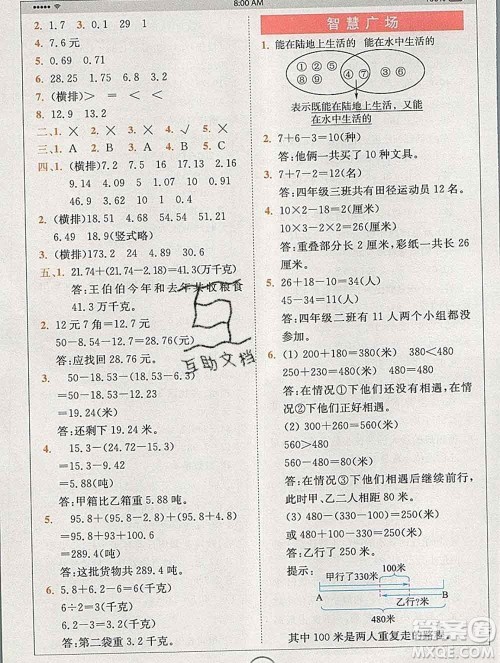 8:00 AM
2. 1.7 0.3 29 1
4. 7.6元
5. 0.69 0.71
6. 28.25 1.75 6.8 31.15
7. (横排)> = < <
8. 12.9 13.2
二、1. × 2. × 3. × 4. √ 5. ×
三、1. A 2. B 3. A 4. A 5. C
四、1. (横排)7.2 9.4 7.5 16
10 0.9 1 0.91
2. (横排)18.51 4.37 21.52
6.49 18.9 (竖式略)
3. (横排)173.2 24 4.89 30.9
五、1. 21.74+(21.74-2.18)=41.3(万千克)
答:王伯伯今年和去年共收粮食
41.3万千克。
2. 12元7角=12.7元
50-8.54-12.7=28.76(元)
答:应找回28.76元。
3. 50-18.53-(18.53-6.3)
=31.47-12.23
=19.24(米)
答:还剩下19.24米。
4. 15.3-(24.7-15.3)
=15.3-9.42
=5.88(吨)
答:甲箱比乙箱重5.88吨。
5. 95.8+(95.8-2.8)+100.6
=95.8+93+100.6
=289.4(吨)
答:这批货物共289.4吨。
6. 5.2+6.8-6=6(千克)
6÷2=3(千克)
6.2-3=3.2(千克)
答:第二袋重3.2千克。
智慧广场
1. 能在陆地上生活的 能在水中生活的
① ② ⑤ ⑥ ④ ⑦ ③ ⑧
表示既能在陆地上生活,又能
在水中生活的
2. 7+6-3=10(种)
答:他俩一共买了10种文具。
3. 7+7-2=12(名)
答:四年级三班共有田径运动员12名。
4. 10×2-18=2(厘米)
10×3-2×2=26(厘米)
答:重叠部分长2厘米。彩纸一共长26
厘米。
5. 26+18-10=34(人)
45-34=11(人)
答:四年级二班有11人两个小组都没
参加。
6. (1)200+180=380(米) 380<480
260+220=480(米)
答:在情况①下他们还没有相遇,在情
况②下他们正好相遇。
(2)300+260=560(米)
560>480
560-480=80(米)
答:在情况③下他们相遇后继续前行
时,甲、乙二人有80米是重复走的。
(3)480-(330-100)=250(米)
480-330+100=250(米)
答:乙行了250米。
提示:
100米
甲行了330米
A B
乙行?米
480米
其中100米是两人重复走的路程。
互助文档
MXQE.COM